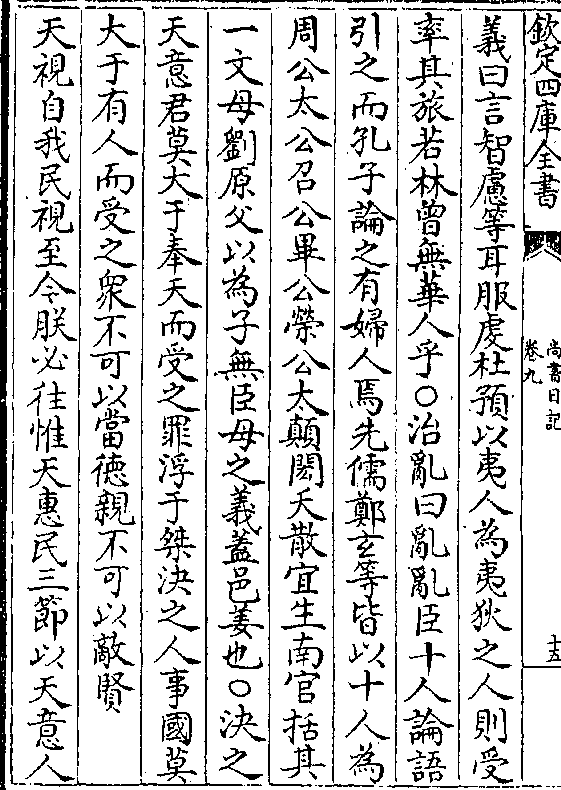 欽定四庫全書
尚書日記
卷九
十五
義曰言智慮等耳服虔杜預以夷人為夷狄之人則受
率其旅若林曾無華人乎○治亂曰亂亂臣十人論語
引之而孔子論之有婦人焉先儒鄭玄等皆以十人為
周公太公召公畢公榮公太顛閎夭散宜生南宮括其
一文母劉原父以為子無臣母之義葢邑姜也○決之
天意君莫大于奉天而受之罪浮于桀決之人事國莫
大于有人而受之衆不可以當徳親不可以敵賢
天視自我民視至今朕必往惟天惠民三節以天意人